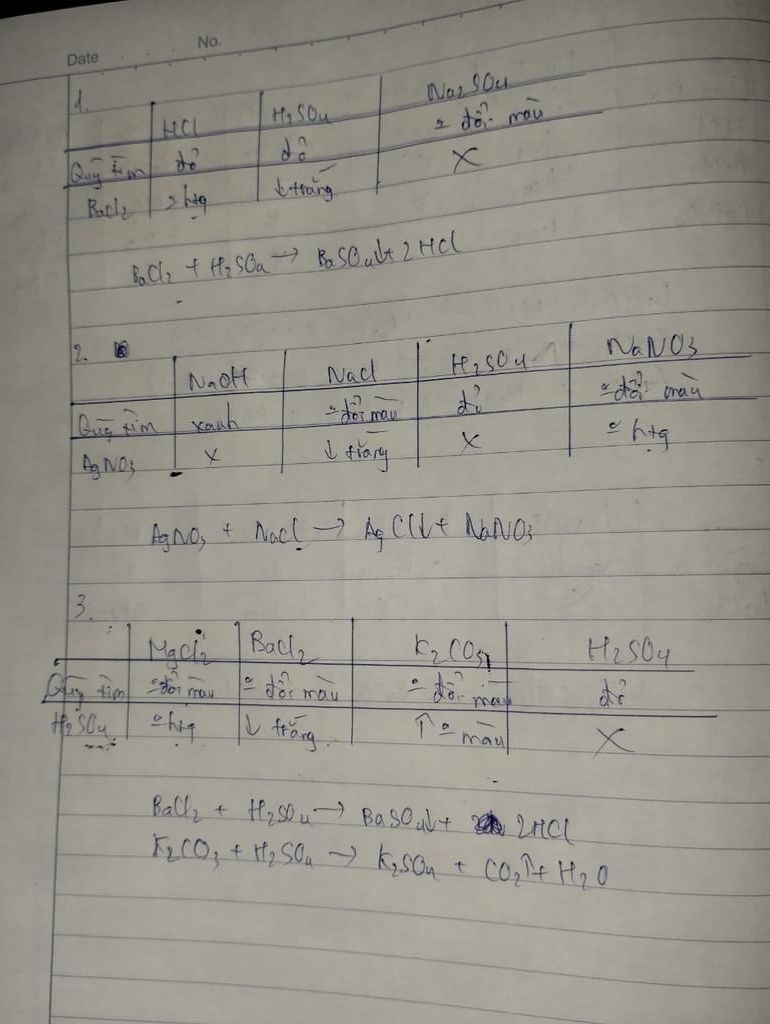 Date No.
1.
HCl H₂SO₄ Na₂SO₄
Quỳ tím đỏ đỏ ⁰ đổi màu
BaCl₂ ⁰ htg ↓ trắng X
BaCl₂ + H₂SO₄ → BaSO₄↓ + 2HCl
2.
NaOH NaCl H₂SO₄ NaNO₃
Quỳ tím xanh ⁰ đổi màu đỏ ⁰ đổi màu
AgNO₃ X ↓ trắng X ⁰ htg
AgNO₃ + NaCl → AgCl↓ + NaNO₃
3.
MgCl₂ BaCl₂ K₂CO₃ H₂SO₄
Quỳ tím ⁰ đổi màu ⁰ đổi màu ⁰ đổi màu đỏ
H₂SO₄ ⁰ htg ↓ trắng ↑ ⁰ màu X
BaCl₂ + H₂SO₄ → BaSO₄↓ + 2HCl
K₂CO₃ + H₂SO₄ → K₂SO₄ + CO₂↑ + H₂O